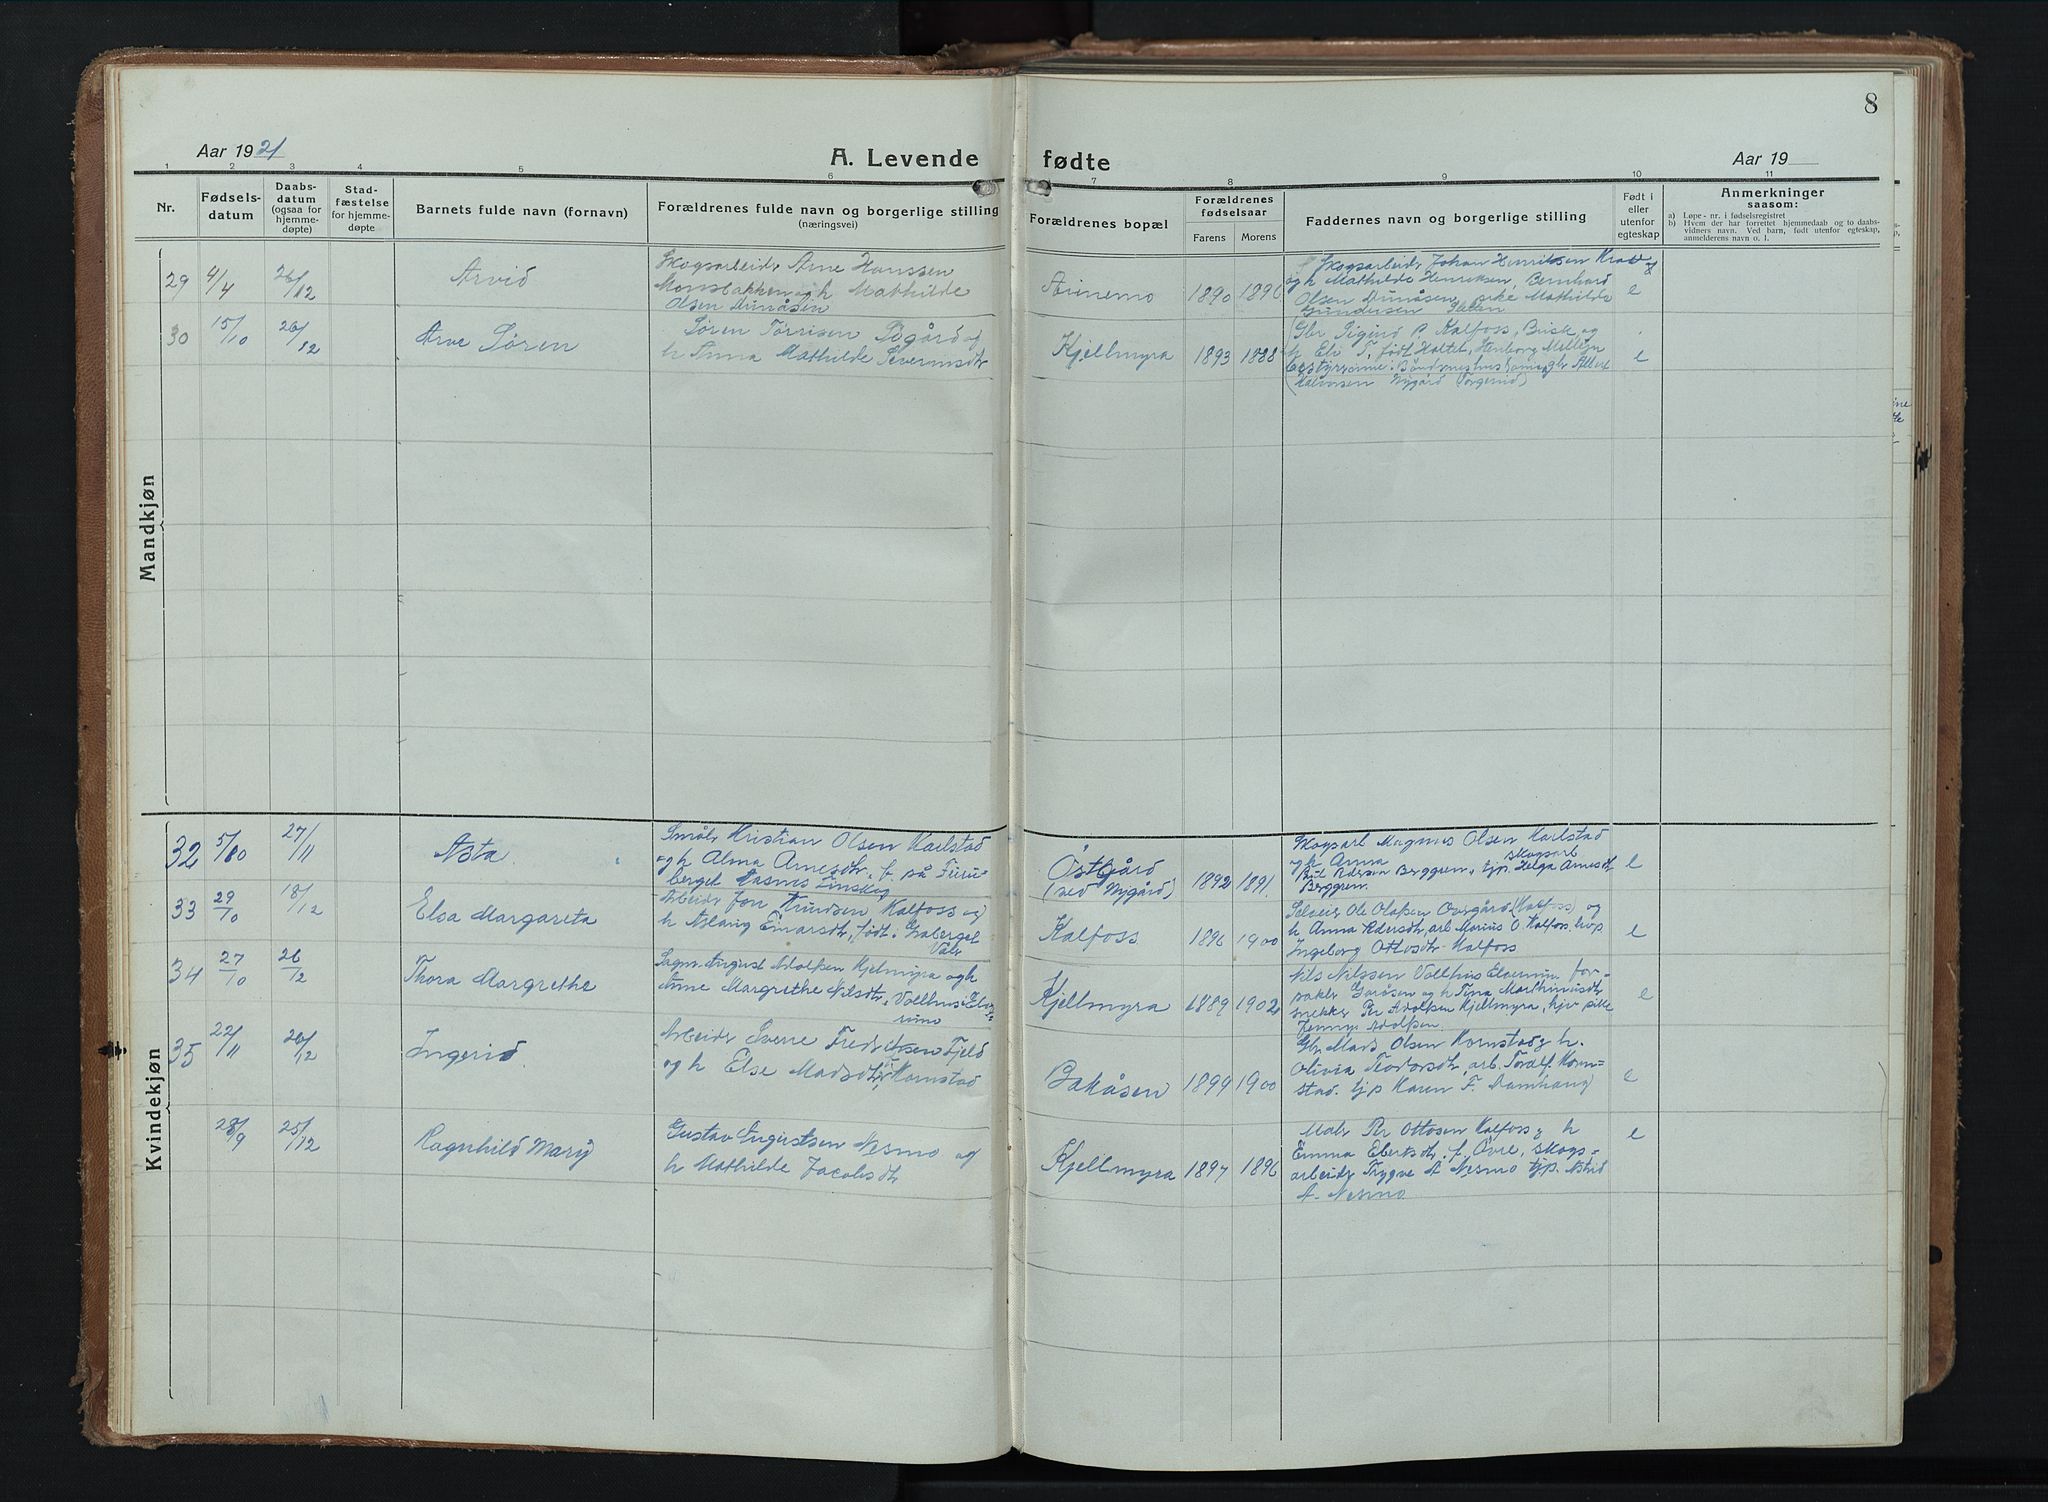 8
Aar 1921
A. Levende fødte
Aar 19
1 2 3 4 5 6 7 8 9 10 11
Nr.
Fødsels-
datum
Daabs-
datum
(ogsaa for
hjemme-
døpte)
Stad-
fæstelse
for hjemme-
døpte
Barnets fulde navn (fornavn)
Forældrenes fulde navn og borgerlige stilling
(næringsvei)
Forældrenes bopæl
Forældrenes
fødselsaar
Farens Morens
Faddernes navn og borgerlige stilling
Født i
eller
utenfor
egteskap
Anmerkninger
saasom:
a) Løpe-nr. i fødselsregistret
b) Hvem der har forrettet hjemmedaab og to daabs-
vidners navn. Ved barn, født utenfor egteskap,
anmelderens navn o. l.
Mandkjøn
29 4/4 26/12 Arvid
Skogsarbeidr Arne Hanssen
Monsbakken og h Mathilde
Olsen Dunåsen
Arnemo 1890 1896
Skogsarbeidr Johan Henriksen
og h Mathilde Henriksen, Bernhard
Olsen Dunåsen, Mathilde
Gundersen
e
30 15/10 26/12 Arve Søren
Søren Torrisen Søgård og
h Anna Mathilde Severinsdtr
Kjellmyra 1893 1888
Gbr Sigurd P Kalfoss, Brisk, og
h Eli T, født Holtet,
Halvorsen Nygård (Torgerud)
e
Kvindekjøn
32 5/10 27/11 Asta
Småbr Kristian Olsen Karlstad
og h Alma Arnesdtr, f. på Furu-
berget Hasnes Finskog
Östgård
(ved Nygård)
1892 1891
Skogsarb Magnus Olsen Karlstad
og h Anna skogsarb
Pedersen Berggren, tjp. Helga Arnesdtr
Berggren
e
33 29/10 18/12 Elsa Margareta
Arbeidr Jon Knudsen Kalfoss og
h Aslaug Einarsdtr, født i Graberget
Våler
Kalfoss 1896 1900
Selveier Ole Olafsen Overgård (Kalfoss) og
h Anna Pedersdtr, arb Marius O. Kalfoss,
Ingeborg Ottosdtr Kalfoss
e
34 27/10 26/12 Thora Margrethe
Sagm August Adolfsen Kjelmyra og h
Anne Margrethe Nilsdtr, Vollhus Elve-
rum
Kjellmyra 1889 1902
Nils Nilssen Vollhus Elverum, for-
pakter og h Tina Marthinusdtr
snekker Per Adolfsen Kjellmyra,
Jenny Adolfsen
e
35 22/11 26/12 Ingerid
Arbeidr Sverre Fredriksen Fjeld
og h Else Madsdtr, f Kornstad
Bakåsen 1899 1900
Gbr Mads Olsen Kornstad og h.
Olivia Teodorsdtr, arb. Torolf Korn-
stad. tjp Karen F. Damhaug
e
28/9 25/12 Ragnhild Mary
Gustav Augustsen Nesmo og
h Mathilde Jacobsdtr
Kjellmyra 1897 1896
Malr Per Ottosen Kalfoss og h
Emma Ebertsdtr. f. Övre, skogs-
arbeidr Trygve A Nesmo tjp. Astrid
A. Nesmo
e